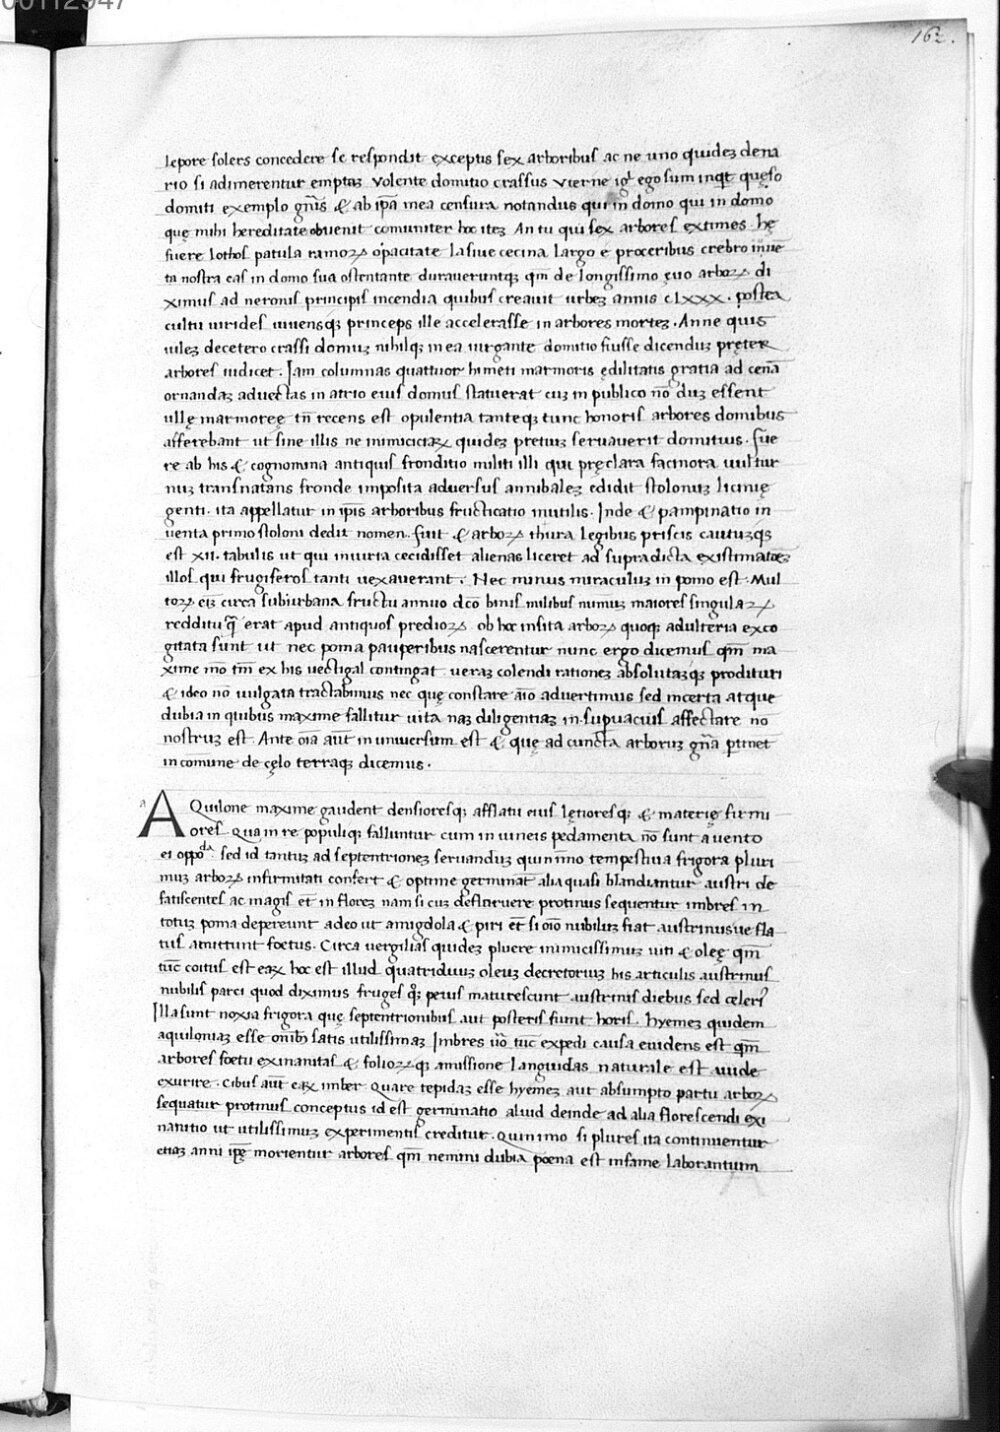 00112947
162.
lepore solers concedere se respondit exceptis sex arboribus ac ne uno quideʒ dena
rio si adimerentur emptas volente domitio crassus vter ne igͥ ego sum inqͥt quęso
domiti exemplo gnͫis & ab ip̄a mea censura notandus qui in domo qui in domo
quę mihi hereditate obuenit comuniter hoc iteʒ An tu qui sex arbores extimes. hę
fuere lothos patula ramoꝝ opacitate lasiue cecina largo e proceribus crebro iuuē
ta nostra eas in domo sua ostentante durauerunteqʒ qm̄ de longissimo ęuo arboꝝ di
ximus ad neronis principis incendia quibus creauit urbeʒ annis clxxx. postea
cultu uirides iuuensqʒ princeps ille accelerasse in arbores morteʒ. Anne quis
uileʒ decetero crassi domuʒ nihilqʒ in ea iurgante domitio fuisse dicenduʒ pręter
arbores iudicet. Jam columnas quattuor himeti marmoris ędilitatis gratia ad cenā
ornandaʒ aduectas in atrio eius domus statuerat cuʒ in publico nō duʒ essent
ullę marmoreę tn̄ recens est opulentia tanteqʒ tunc honoris arbores domibus
afferebant ut sine illis ne inimicitiaꝝ quideʒ pretiuʒ seruauerit domitius. fūe
re ab his & cognomina antiquis fronditio militi illi qui pręclara facinora uultur
nuʒ transnatans fronde imposita aduersus annibaleʒ edidit stolonuʒ licinię
genti. ita appellatur in ip̄is arboribus fructicatio inutilis. Inde & pampinatio in
uenta primo stoloni dedit nomen. fuit & arboꝝ thura legibus priscis cautuʒqʒ
est xii. tabulis ut qui iniuria cecidisset alienas liceret ad supradicta existimatōeʒ
illos qui frugiferos tanti uexauerant. Nec minus miraculuʒ in pomo est. Mul
toꝝ eiʒ circa suburbana fructu annuo dc̄o binis milibus num̄uʒ maiores singulaꝝ
redditu q̄ erat apud antiquos predioꝝ ob hoc insita arboꝝ quoqʒ adulteria exco
gitata sunt ut nec poma pauperibus nascerentur nunc ergo dicemus qm̄ ma
xime mō tm̄ ex his uectigal contingat ueraʒ colendi rationeʒ absolutaʒqʒ prodituri
& ideo nō uulgata tractabimus nec quę constare aīo aduertimus sed incerta atque
dubia in quibus maxime fallitur uita naʒ diligentiaʒ in supuacuis affectare nō
nostruʒ est. Ante oīa aūt in uniuersum est & quę ad cuncta arboruʒ gn̄a p̄tinet
in comune de cęlo terraqʒ dicemus.
a
AQuilone maxime gaudent densioresqʒ afflatu eius lętioresqʒ & materię firmi
ores Qua in re populiqʒ falluntur cum in uineis pedamenta nō sunt a uento
ei oppoͩᵃ. sed id tantuʒ ad septentrioneʒ seruanduʒ quinīmo tempestiua frigora pluri
muʒ arboꝝ infirmitati confert & optime germināt alia quasi blandiantur austri de
fatiscentes ac magis et̄ in floreʒ nam si cuʒ defloruere protinus sequentur imbres in
totuʒ poma depereunt adeo ut amigdola & piri et̄ si oīo nubiluʒ fiat austrinusue fla
tus amittunt foetus. Circa uergilias quideʒ pluere inimicissimuʒ uiti & olęę qm̄
tūc coitus est eaꝝ hoc est illud quatriduuʒ oleuʒ decretoriuʒ his articulis austrinus
nubilis parci quod diximus fruges qͦqʒ peius maturescunt austrinis diebus sed celeri
Illa sunt noxia frigora quę septentrionibus aut posteris fiunt horis. hyemeʒ quidem
aquiloniaʒ esse om̄ibʒ satis utilissimaʒ Imbres uō tūc expedi causa euidens est qm̄
arbores foetu exinanitas & folioꝝqʒ amissione languidas naturale est auide
exurire. Cibus aūt eaꝝ imber Quare tepidaʒ esse hyemeʒ aut absumpto partu arboꝝ
sequatur protinus conceptus id est germinatio aliud deinde ad alia florescendi exi
nanitio ut utilissimuʒ experimentis creditur. quinimo si plures ita continuentur
etiaʒ anni ip̄ę morientur arbores qm̄ nemini dubia poena est infame laborantium